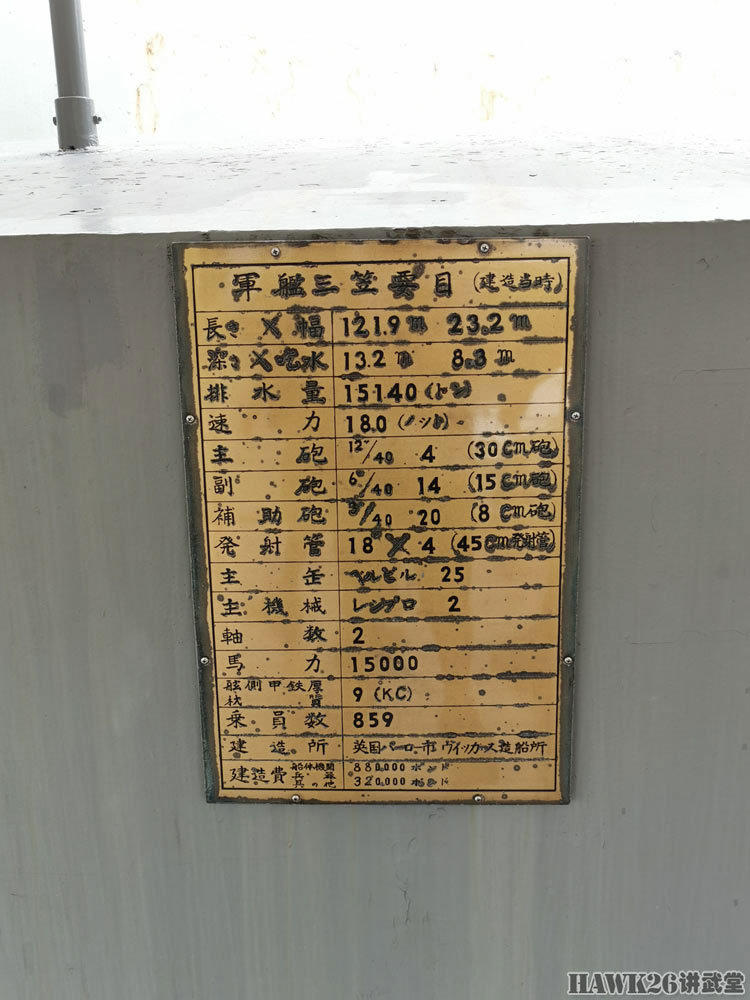 軍艦三笠要目(建造当時)
長さ×幅 121.9m 23.2m
深さ×吃水 13.2m 8.3m
排水量 15140(トン)
速力 18.0(ノット)
主砲 12"/40 4 (30cm砲)
副砲 6"/40 14 (15cm砲)
補助砲 3"/40 20 (8cm砲)
発射管 18"×4 (45cm発射管)
主缶 ベルビル 25
主機械 レシプロ 2
軸数 2
馬力 15000
舷側甲鉄厚
材質 9(KC)
乗員数 859
建造所 英国バーロー市ヴィッカース造船所
建造費 船体機関 880,000ポンド
兵器
其の他 320,000ポンド
HAWK26讲武堂